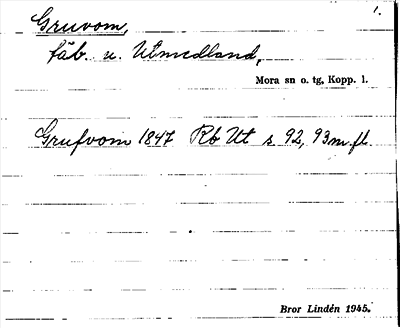 1.
Gruvom,
fäb. u. Utmedland,
Mora sn o. tg, Kopp. l.
Grufvom 1847 Rb Ut s. 92, 93 m.fl.
Bror Lindén 1945.